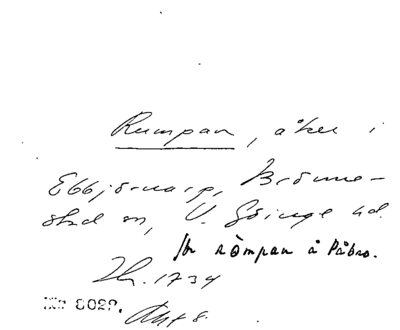 Rumpan, åker i
Ebbjörnarp, Brönne-
stad sn, V. Göinge hd.
jfr römpan å Påbro.
1734
8.